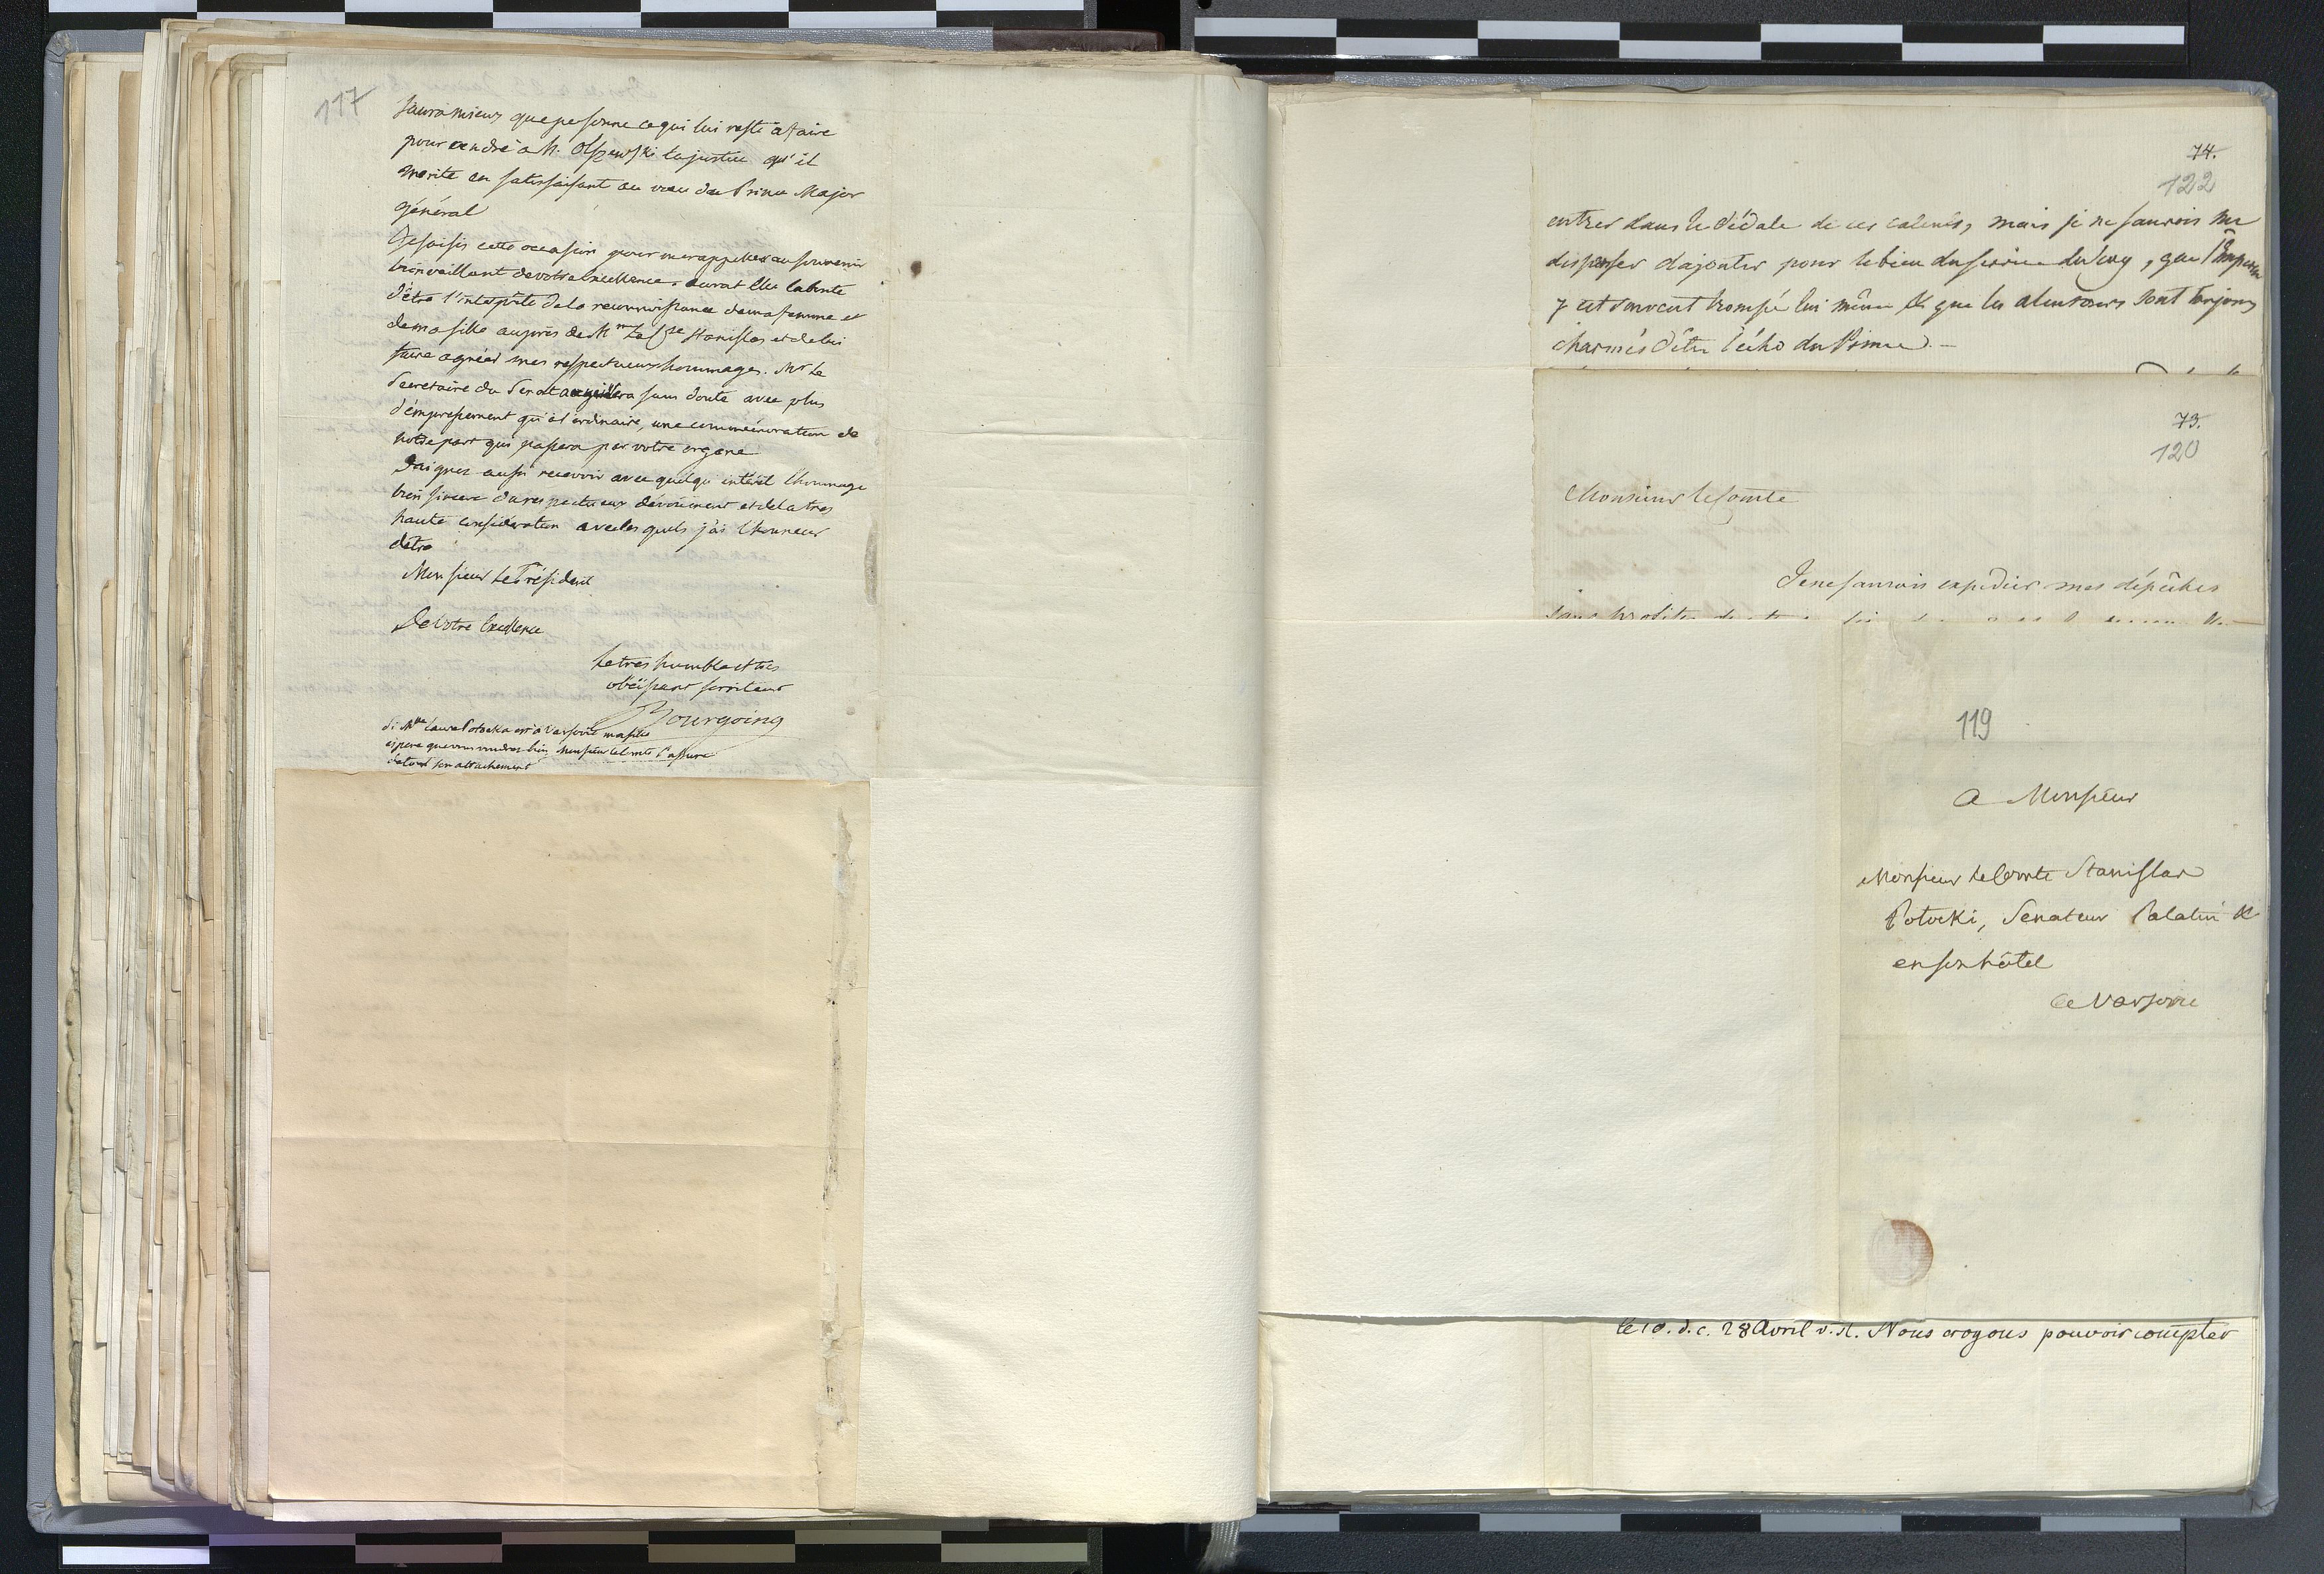 117
saura mieux que personne ce qui lui reste a faire
pour rendre a M. Olszewski la justice qu'il
merite en satisfaisant au vœu du Prince Major
général
Je saisis cette occasion pour me rappeller au souvenir
bienveillant de votre Excellence. aurat Elle la bonté
d'être l'interprète de la reconnoissance de ma femme et
de ma fille auprès de Mme la Csse Stanislas et de lui
faire agréer mes respectueux hommages. Mr le
Secretaire du Senat accueillera sans doute avec plus
d'empressement qu'à l'ordinaire, une commémoration de
notre part qui passera par votre organe
Daignez aussi recevoir avec quelqu'intérêt l'hommage
bien sincere du respectueux dévouement et de la tres
haute considération avec les quels j'ai l'honneur
d'etre
Monsieur le Président
De Votre Excellence
le tres humble et tres
obéissant serviteur
Bourgoing
Si Mde Laure Potocka est à Varsovie ma fille
espere que vous voudrez bien, Monsieur le Comte l'assurer
de tout son attachement
74.
122
entrer dans le dédale de ces calculs, mais je ne saurois me
dispenser d'ajouter pour le bien du service du Roy, que l'Empereur
y est souvent trompé lui même & que les alentours sont toujours
charmés d'être l'écho du Prince. -
73.
120
Monsieur le Comte
Je ne saurois expédier mes dépêches
sans profiter de
119
A Monsieur
Monsieur le Comte Stanislas
Potocki, Senateur Palatin &
en son hôtel
a Varsovie
le 10. d. c. 28 Avril v. st. Nous croyons pouvoir compter